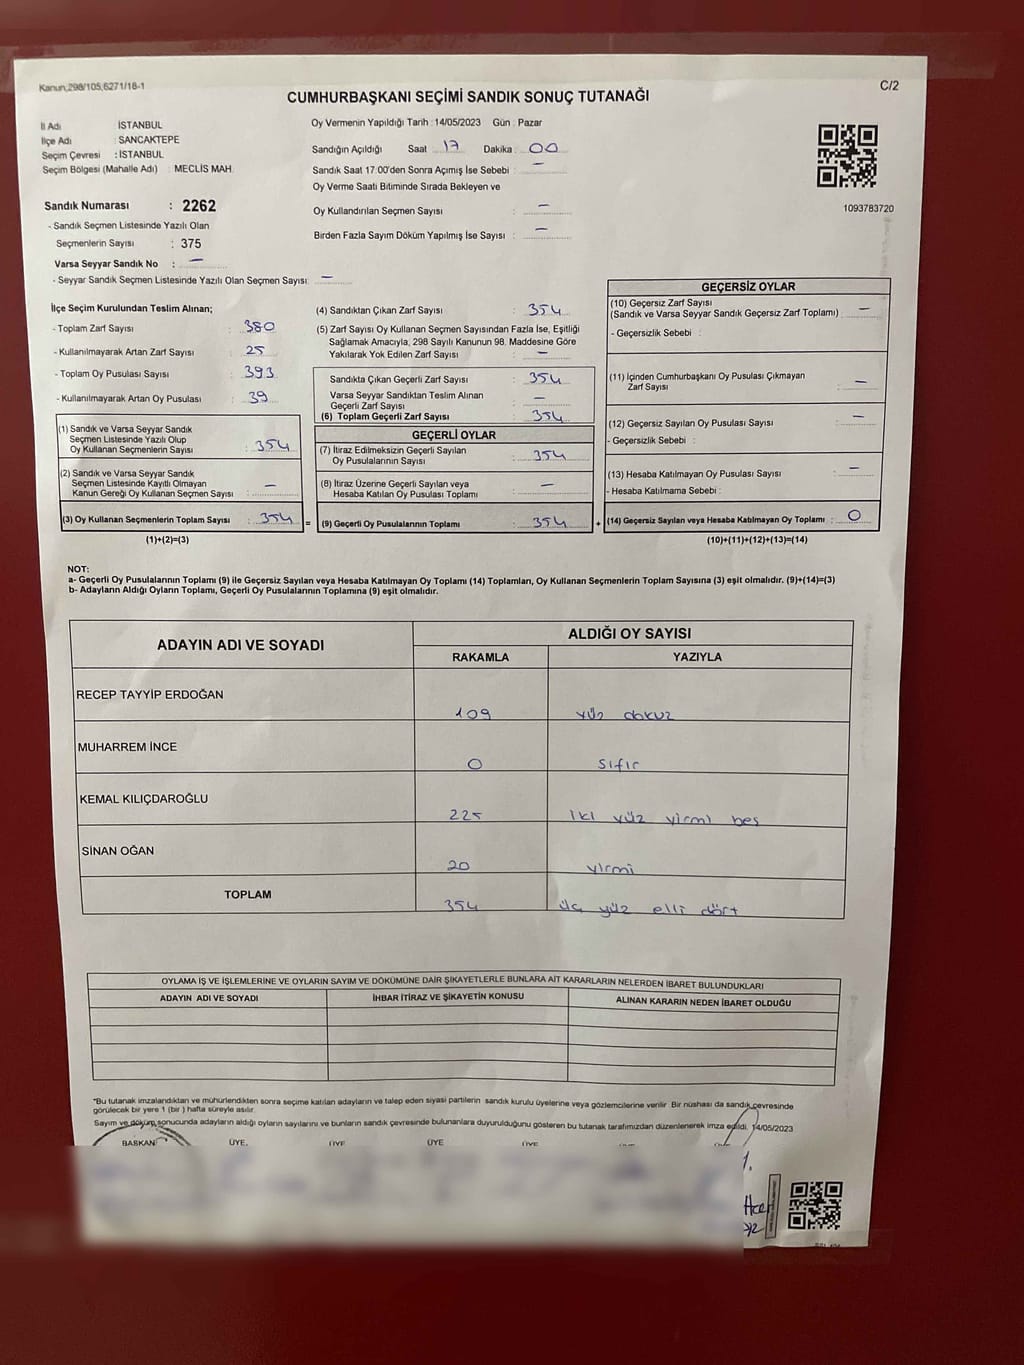 Kanun;298/105,6271/18-1
C/2
CUMHURBAŞKANI SEÇİMİ SANDIK SONUÇ TUTANAĞI
İl Adı : İSTANBUL
İlçe Adı : SANCAKTEPE
Seçim Çevresi : İSTANBUL
Seçim Bölgesi (Mahalle Adı) : MECLİS MAH.
Oy Vermenin Yapıldığı Tarih : 14/05/2023 Gün : Pazar
Sandığın Açıldığı Saat : 17 Dakika : 00
Sandık Saat 17:00'den Sonra Açımış İse Sebebi : —
Oy Verme Saati Bitiminde Sırada Bekleyen ve
Oy Kullandırılan Seçmen Sayısı : —
Birden Fazla Sayım Döküm Yapılmış İse Sayısı : —
1093783720
Sandık Numarası : 2262
- Sandık Seçmen Listesinde Yazılı Olan
Seçmenlerin Sayısı : 375
Varsa Seyyar Sandık No : —
- Seyyar Sandık Seçmen Listesinde Yazılı Olan Seçmen Sayısı: —
İlçe Seçim Kurulundan Teslim Alınan;
- Toplam Zarf Sayısı : 380
- Kullanılmayarak Artan Zarf Sayısı : 25
- Toplam Oy Pusulası Sayısı : 393
- Kullanılmayarak Artan Oy Pusulası : 39
(1) Sandık ve Varsa Seyyar Sandık
Seçmen Listesinde Yazılı Olup
Oy Kullanan Seçmenlerin Sayısı : 354
(2) Sandık ve Varsa Seyyar Sandık
Seçmen Listesinde Kayıtlı Olmayan
Kanun Gereği Oy Kullanan Seçmen Sayısı : —
(3) Oy Kullanan Seçmenlerin Toplam Sayısı : 354 =
(1)+(2)=(3)
(4) Sandıktan Çıkan Zarf Sayısı : 354
(5) Zarf Sayısı Oy Kullanan Seçmen Sayısından Fazla İse, Eşitliği
Sağlamak Amacıyla, 298 Sayılı Kanunun 98. Maddesine Göre
Yakılarak Yok Edilen Zarf Sayısı : —
Sandıkta Çıkan Geçerli Zarf Sayısı : 354
Varsa Seyyar Sandıktan Teslim Alınan
Geçerli Zarf Sayısı : —
(6) Toplam Geçerli Zarf Sayısı : 354
GEÇERLİ OYLAR
(7) İtiraz Edilmeksizin Geçerli Sayılan
Oy Pusulalarının Sayısı : 354
(8) İtiraz Üzerine Geçerli Sayılan veya
Hesaba Katılan Oy Pusulası Toplamı : —
(9) Geçerli Oy Pusulalarının Toplamı : 354 +
GEÇERSİZ OYLAR
(10) Geçersiz Zarf Sayısı
(Sandık ve Varsa Seyyar Sandık Geçersiz Zarf Toplamı) : —
- Geçersizlik Sebebi :
(11) İçinden Cumhurbaşkanı Oy Pusulası Çıkmayan
Zarf Sayısı : —
(12) Geçersiz Sayılan Oy Pusulası Sayısı : —
- Geçersizlik Sebebi :
(13) Hesaba Katılmayan Oy Pusulası Sayısı : —
- Hesaba Katılmama Sebebi :
(14) Geçersiz Sayılan veya Hesaba Katılmayan Oy Toplamı : 0
(10)+(11)+(12)+(13)=(14)
NOT:
a- Geçerli Oy Pusulalarının Toplamı (9) ile Geçersiz Sayılan veya Hesaba Katılmayan Oy Toplamı (14) Toplamları, Oy Kullanan Seçmenlerin Toplam Sayısına (3) eşit olmalıdır. (9)+(14)=(3)
b- Adayların Aldığı Oyların Toplamı, Geçerli Oy Pusulalarının Toplamına (9) eşit olmalıdır.
ADAYIN ADI VE SOYADI ALDIĞI OY SAYISI
RAKAMLA YAZIYLA
RECEP TAYYİP ERDOĞAN 109 yüz dokuz
MUHARREM İNCE 0 sıfır
KEMAL KILIÇDAROĞLU 225 iki yüz yirmi beş
SİNAN OĞAN 20 yirmi
TOPLAM 354 üç yüz elli dört
OYLAMA İŞ VE İŞLEMLERİNE VE OYLARIN SAYIM VE DÖKÜMÜNE DAİR ŞİKAYETLERLE BUNLARA AİT KARARLARIN NELERDEN İBARET BULUNDUKLARI
ADAYIN ADI VE SOYADI İHBAR İTİRAZ VE ŞİKAYETİN KONUSU ALINAN KARARIN NEDEN İBARET OLDUĞU
*Bu tutanak imzalandıktan ve mühürlendikten sonra seçime katılan adayların ve talep eden siyasi partilerin sandık kurulu üyelerine veya gözlemcilerine verilir. Bir nüshası da sandık çevresinde
görülecek bir yere 1 (bir) hafta süreyle asılır.
Sayım ve döküm sonucunda adayların aldığı oyların sayılarını ve bunların sandık çevresinde bulunanlara duyurulduğunu gösteren bu tutanak tarafımızdan düzenlenerek imza edildi. 14/05/2023
BAŞKAN ÜYE ÜYE ÜYE ÜYE